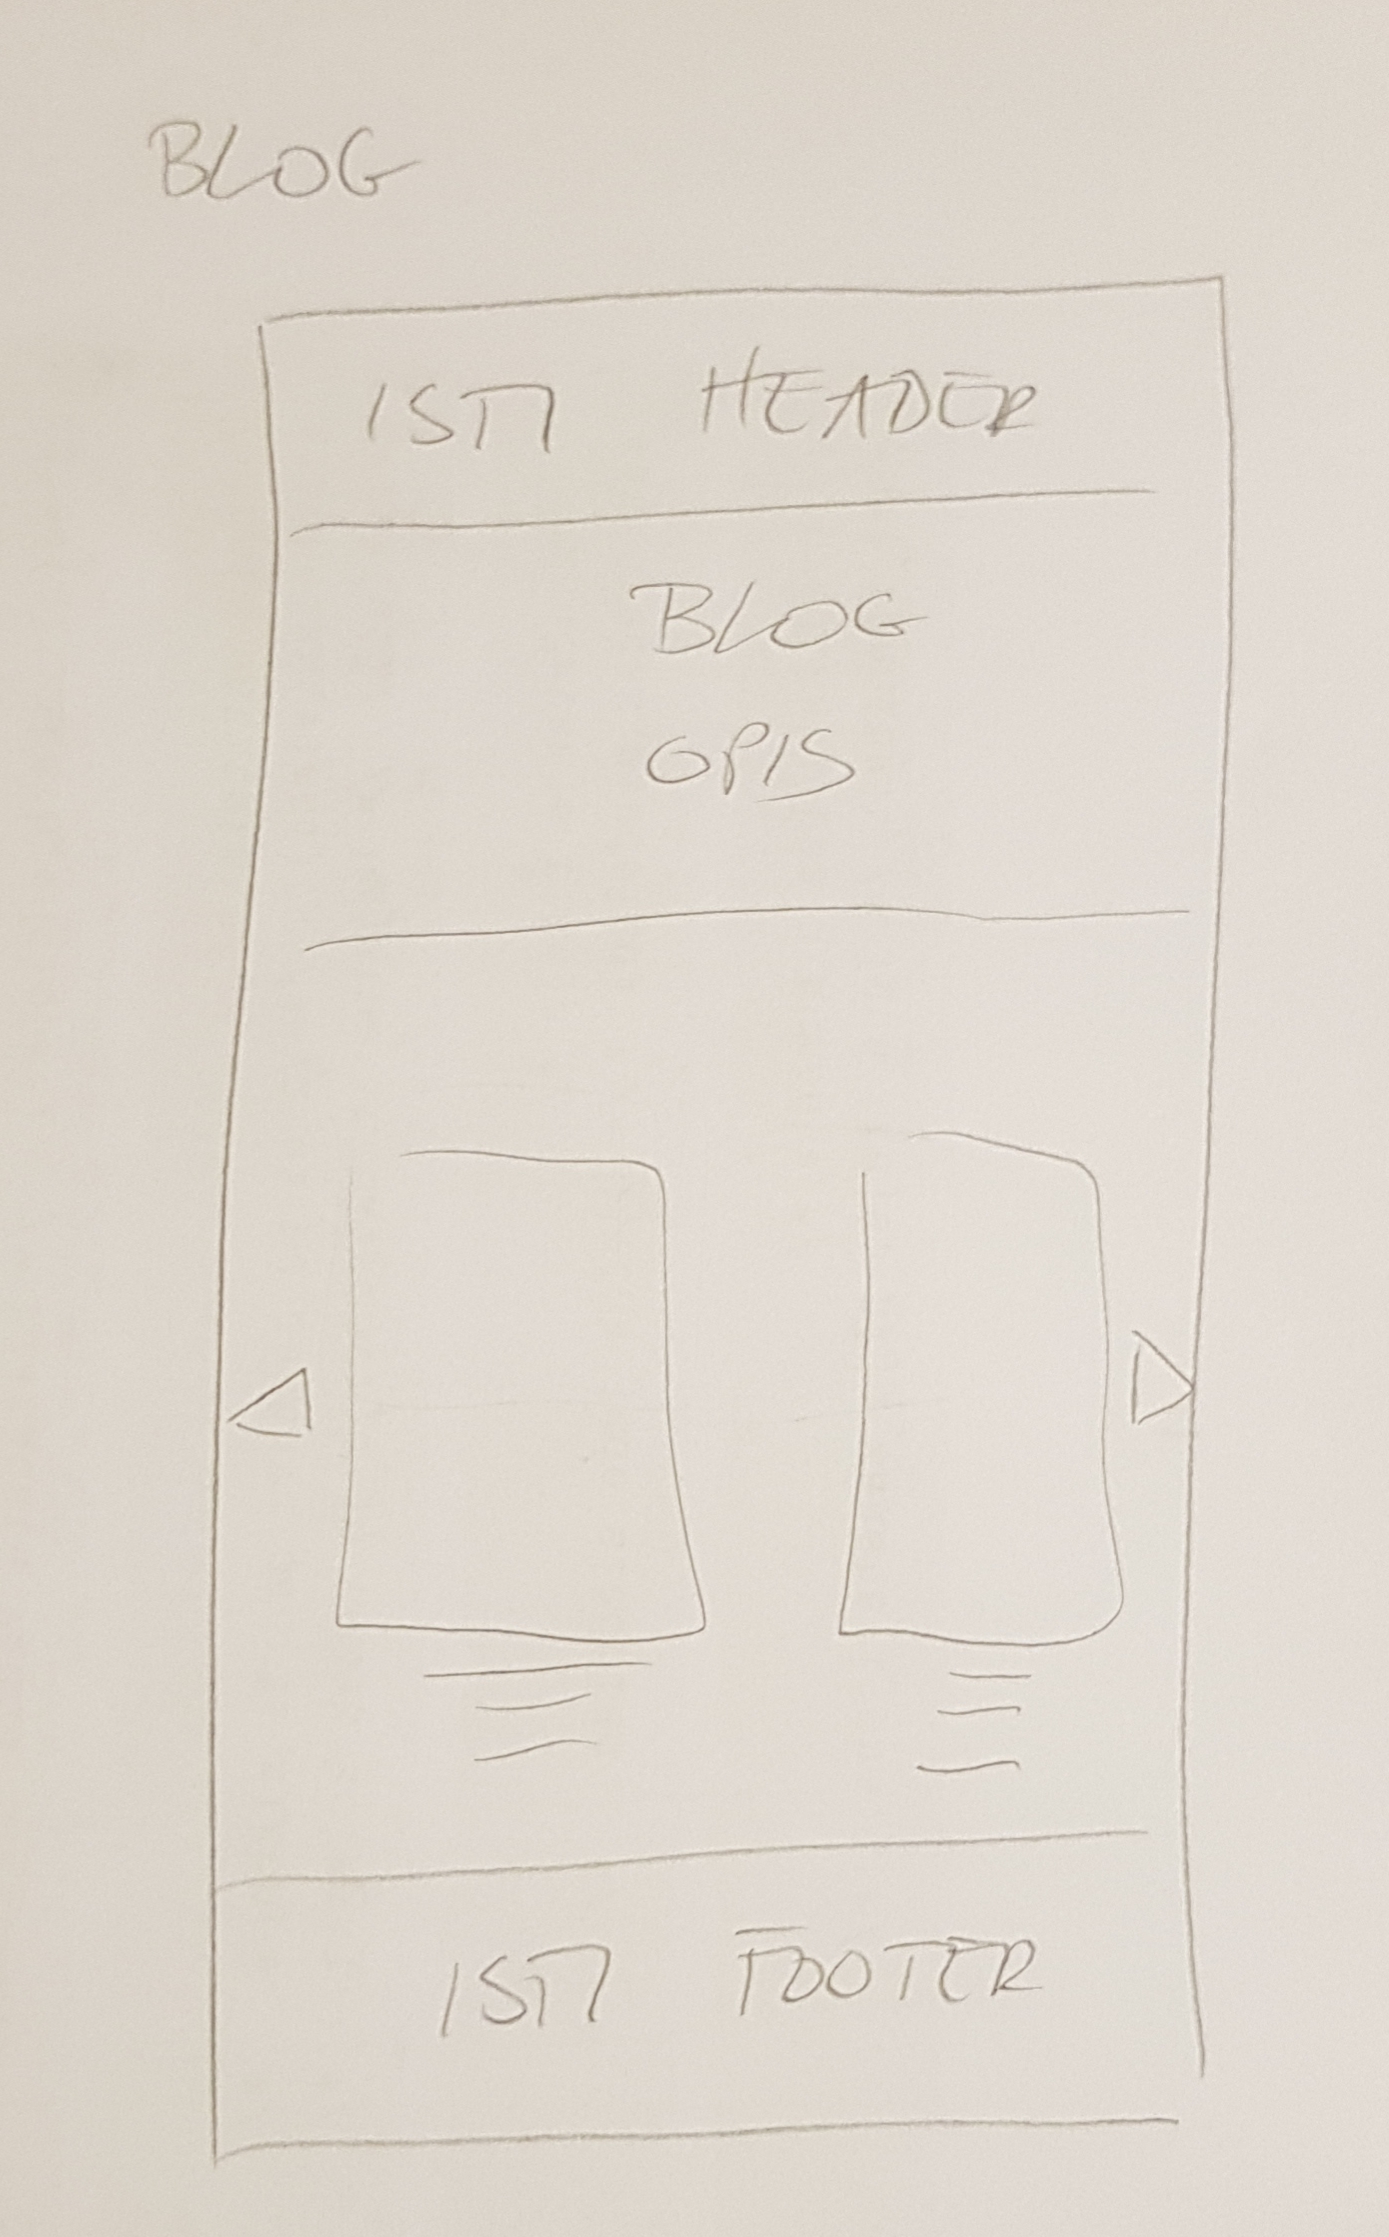 BLOG
ISTI HEADER
BLOG
OPIS
ISTI FOOTER